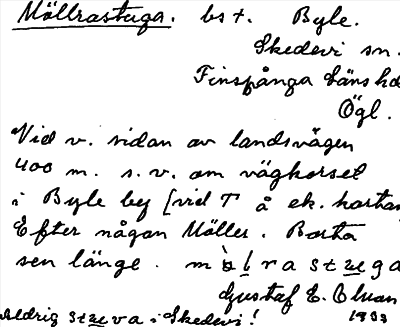 Möllrastuga. bst. Byle.
Skedevi sn.
Finspånga läns hd
Ögl.
Vid v. sidan av landsvägen
400 m. s.v. om vägkorset
i Byle by [vid T å ek. kartan
Efter någon Möller. Borta
sen länge.
Gustaf E.
Aldrig stuva i Skedevi! 1933